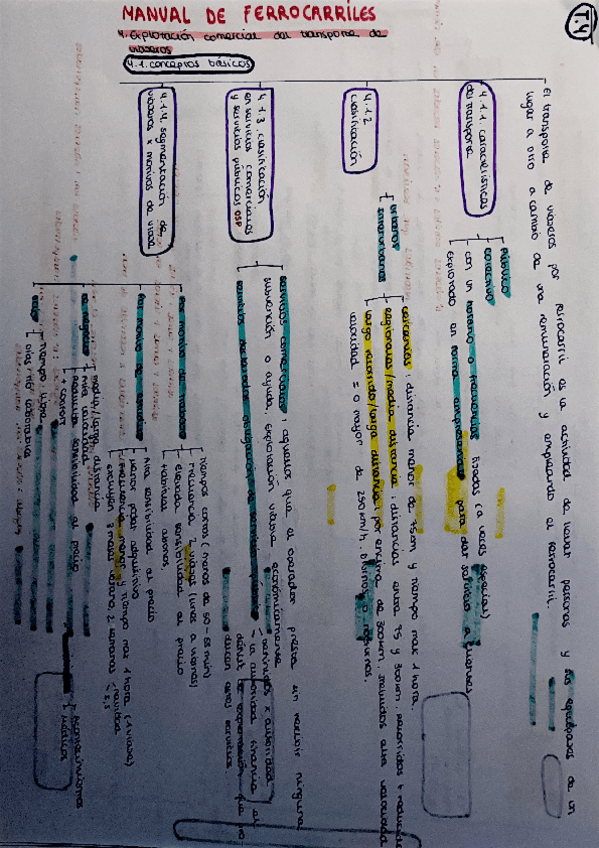 T.4
MANUAL DE FERROCARRILES
4. Explotación comercial del transporte de
viajeros
4.1. conceptos básicos
El transporte de viajeros por ferrocarril es la actividad de llevar personas y sus equipajes de un
lugar a otro a cambio de una remuneración y empleando el ferrocarril.
4.1.1. características
del transporte
Público
colectivo
con un horario o frecuencias fijadas (a veces especiales)
Explotado en forma empresarial para dar servicio a clientes
4.1.2
clasificación
urbanos
interurbanos
cercanías: distancia menor de 75km y tiempo max 1 hora.
regionales/media distancia: distancias entre 75 y 300km. recorridos + reducidos
largo recorrido/larga distancia: por encima de 300km. incluidos alta velocidad
velocidad = o mayor de 250km/h. Diurnos o nocturnos.
4.1.3. clasificación
en servicios comerciales
y servicios públicos OSP
servicios comerciales: aquellos que el operador presta sin recibir ninguna
subvención o ayuda. Explotación viable económicamente
servicios declarados obligación de servicio público
definidos x autoridad
- la autoridad financia el
déficit de explotación que no
cubren estos servicios.
4.1.4. segmentación de
viajeros x motivos de viaje
Por motivo de trabajo
Tiempos cortos (menos de 50-55 min)
Frecuencia 2 viajes (unos a varios)
Elevada sensibilidad al precio
Habitual abonos.
Por motivo de estudios
Alta sensibilidad al precio
menor poder adquisitivo
Frecuencia menor y tiempo max 1 hora (4 viajes)
excluyen 3 meses verano, 2 semanas navidad
media/larga distancia
Alta velocidad
Reducida sensibilidad al precio
+ confort
ocio
Tiempo libre
Días más laborables
Acontecimientos
médicos